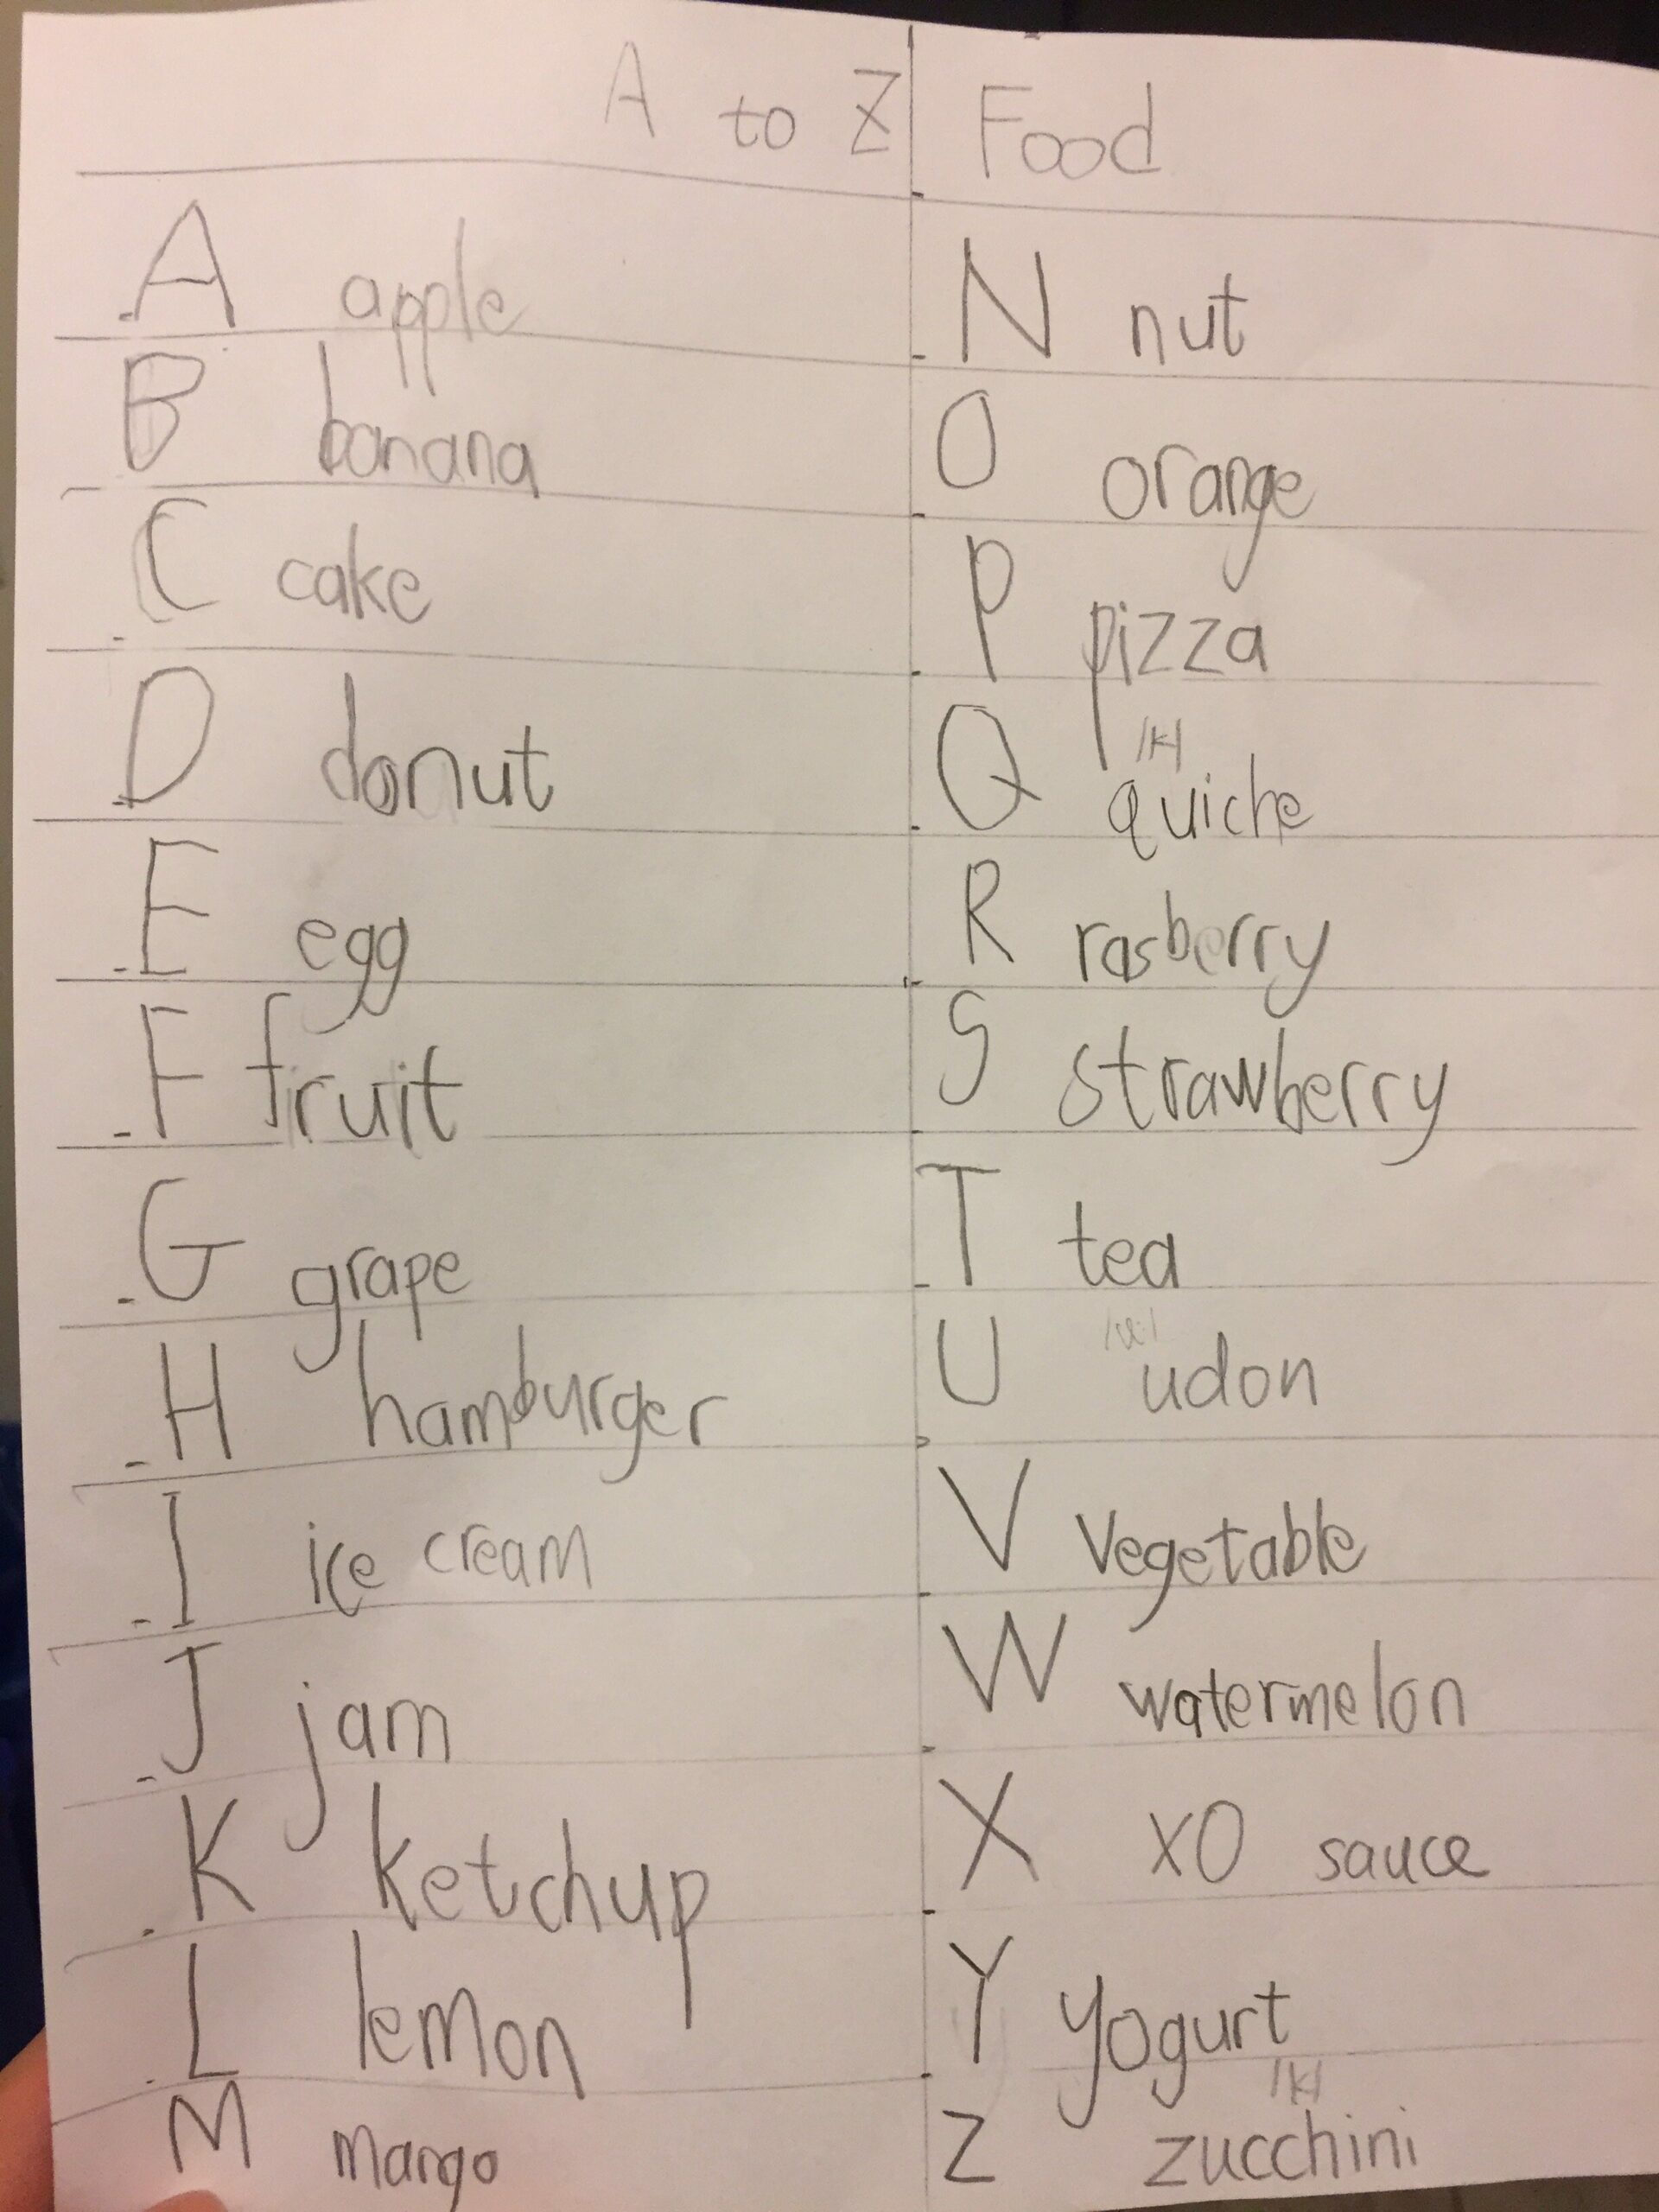 A to Z Food
A apple
B banana
C cake
D donut
E egg
F fruit
G grape
H hamburger
I ice cream
J jam
K ketchup
L lemon
M mango
N nut
O orange
P pizza
/k/
Q quiche
R rasberry
S strawberry
T tea
U udon
V vegetable
W watermelon
X XO sauce
Y yogurt
/k/
Z zucchini